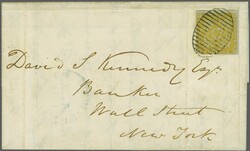 David S Kennedy Esqr.
Banker
Wall Street
New York